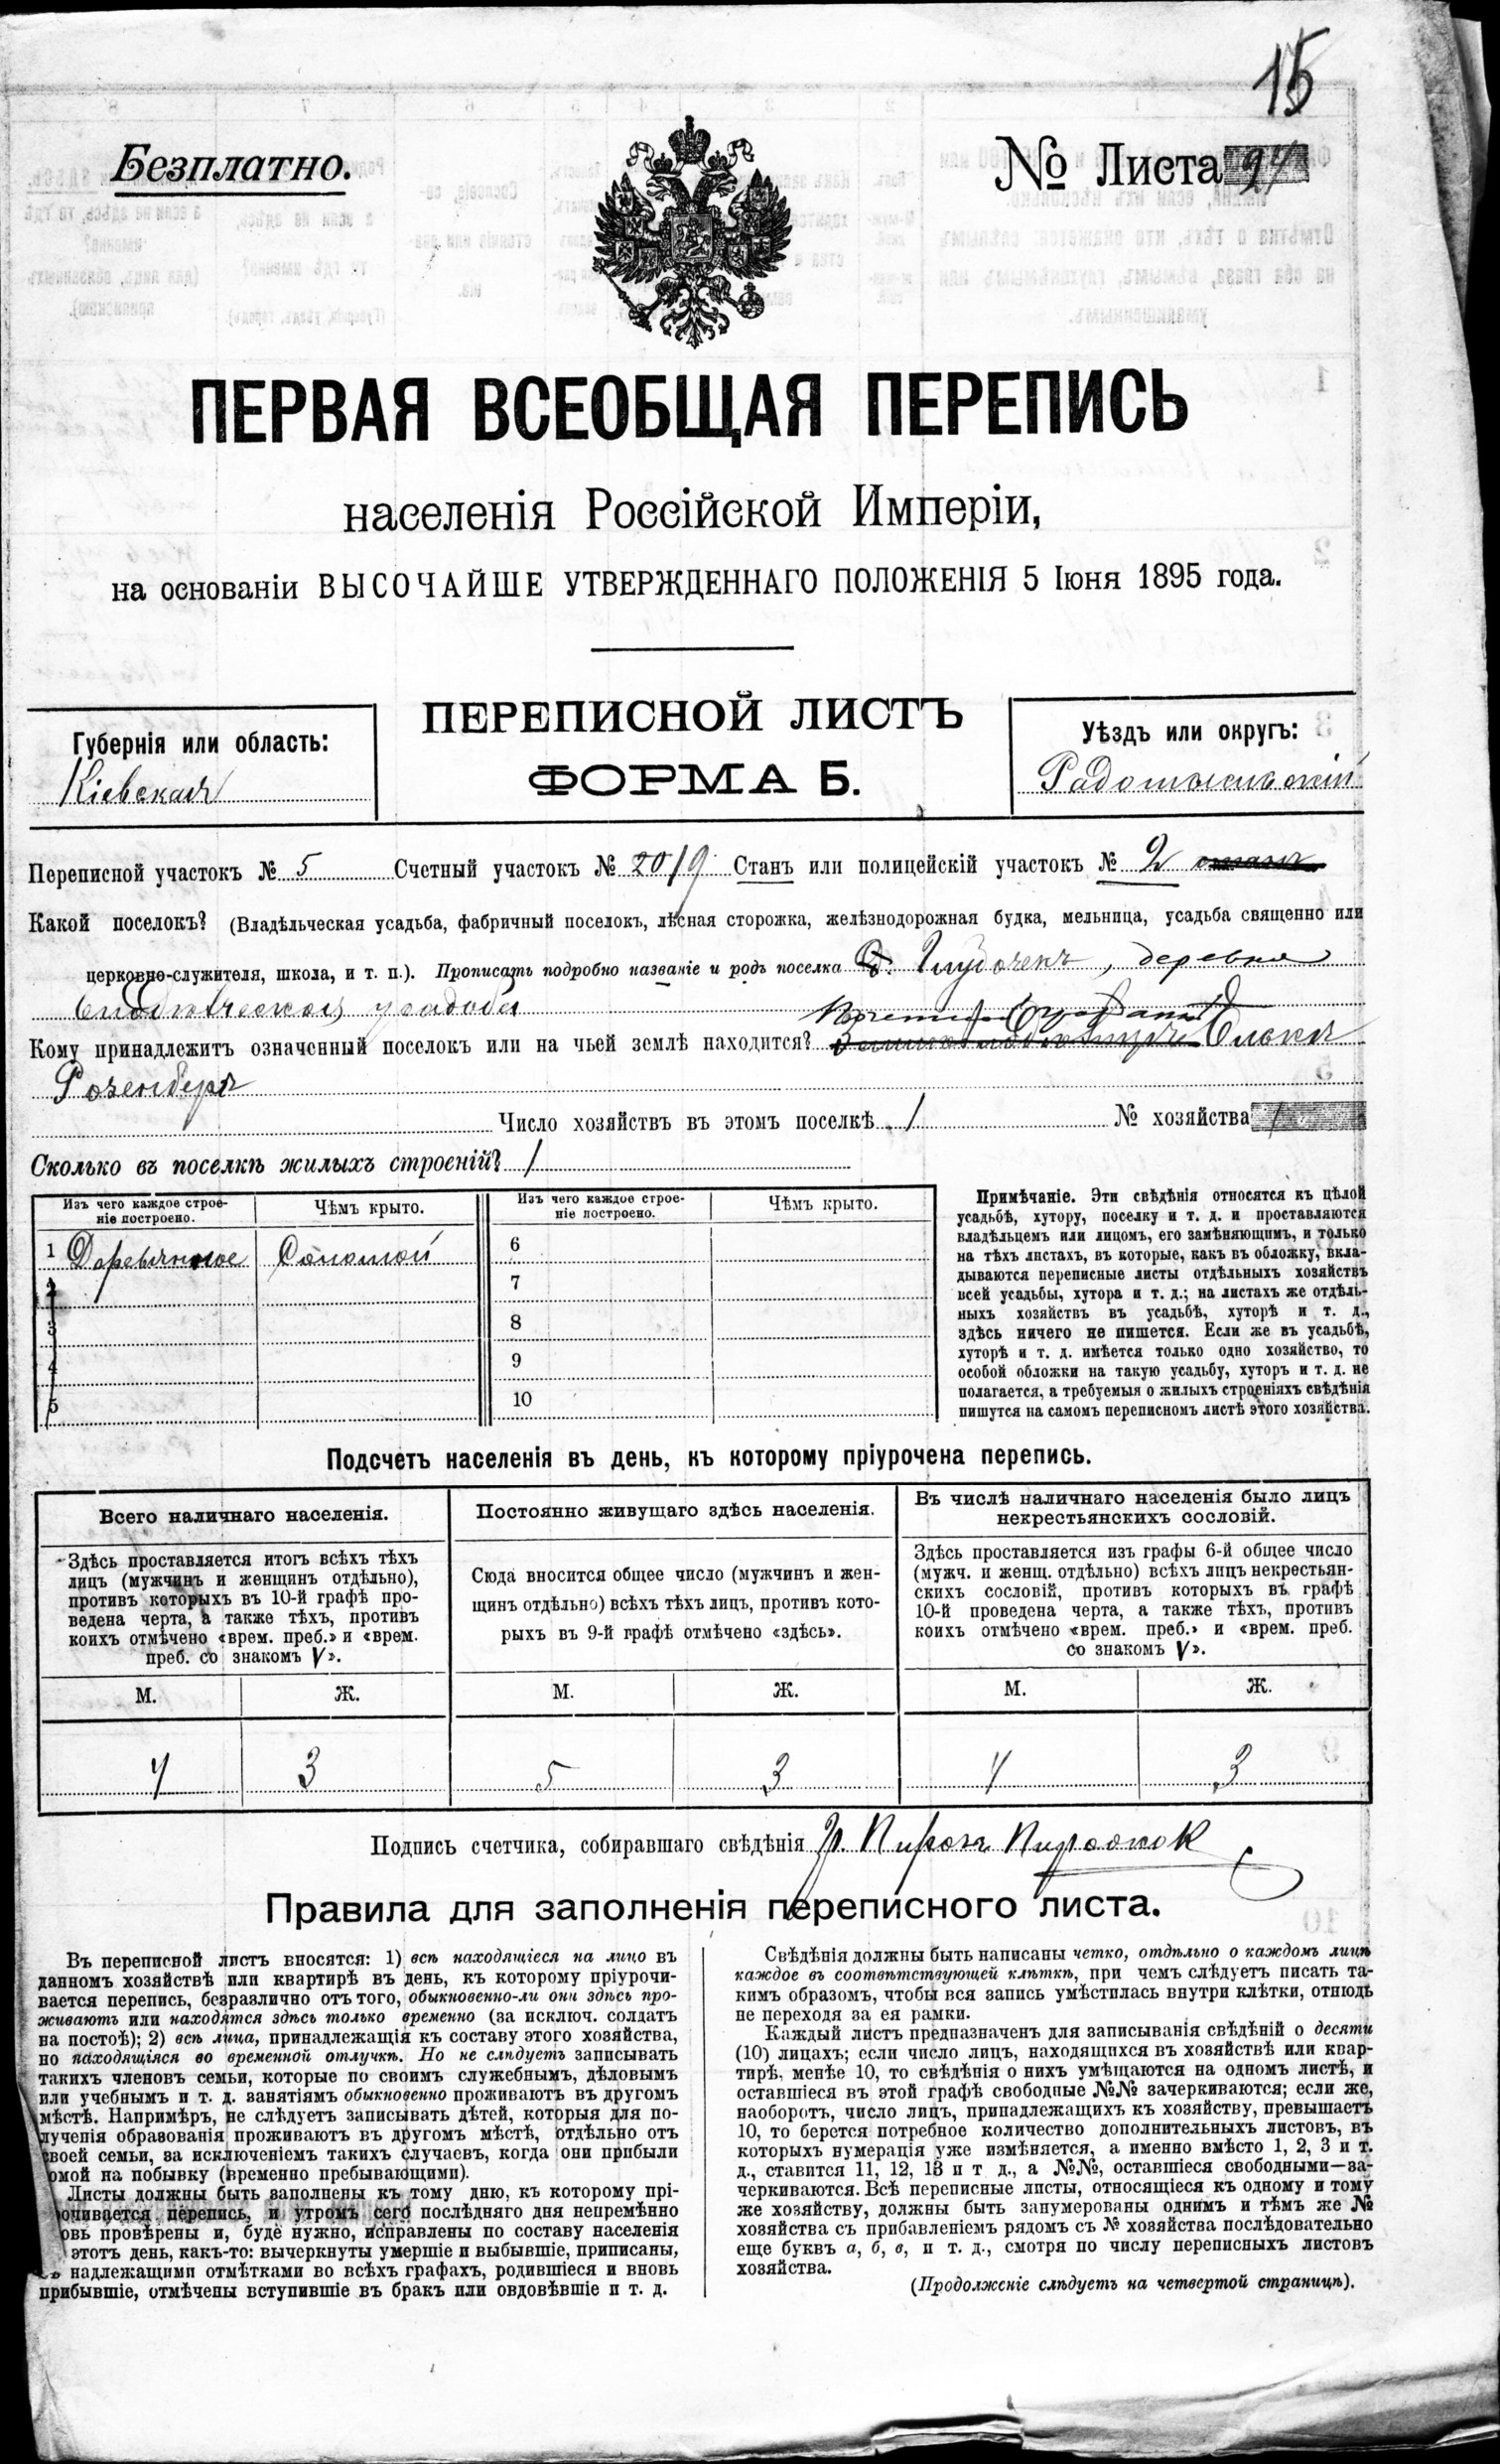 15
Безплатно.
№ Листа 24
ПЕРВАЯ ВСЕОБЩАЯ ПЕРЕПИСЬ
населенія Россійской Имперіи,
на основаніи ВЫСОЧАЙШЕ УТВЕРЖДЕННАГО ПОЛОЖЕНІЯ 5 Іюня 1895 года.
ПЕРЕПИСНОЙ ЛИСТЪ
ФОРМА Б.
Губернія или область:
Кіевская
Уѣздъ или округъ:
Радомысльскій
Переписной участокъ № 5 Счетный участокъ № 20/9 Станъ или полицейскій участокъ № 2
Какой поселокъ? (Владѣльческая усадьба, фабричный поселокъ, лѣсная сторожка, желѣзнодорожная будка, мельница, усадьба священно или
церковно-служителя, школа, и т. п.). Прописать подробно названіе и родъ поселка Глубочекъ, деревня
усадьба
Кому принадлежитъ означенный поселокъ или на чьей землѣ находится?
Розенберга
Число хозяйствъ въ этомъ поселкѣ 1 № хозяйства 1
Сколько въ поселкѣ жилыхъ строеній? 1
Изъ чего каждое строе-
ніе построено.
Чѣмъ крыто.
Изъ чего каждое строе-
ніе построено.
Чѣмъ крыто.
1 Деревянное Соломой
2
3
4
5
6
7
8
9
10
Примѣчаніе. Эти свѣдѣнія относятся къ цѣлой
усадьбѣ, хутору, поселку и т. д. и проставляются
владѣльцемъ или лицомъ, его замѣняющимъ, и только
на тѣхъ листахъ, въ которые, какъ въ обложку, вкла-
дываются переписные листы отдѣльныхъ хозяйствъ
всей усадьбы, хутора и т. д.; на листахъ же отдѣль-
ныхъ хозяйствъ въ усадьбѣ, хуторѣ и т. д.,
здѣсь ничего не пишется. Если же въ усадьбѣ,
хуторѣ и т. д. имѣется только одно хозяйство, то
особой обложки на такую усадьбу, хуторъ и т. д. не
полагается, а требуемыя о жилыхъ строеніяхъ свѣдѣнія
пишутся на самомъ переписномъ листѣ этого хозяйства.
Подсчетъ населенія въ день, къ которому пріурочена перепись.
Всего наличнаго населенія.
Здѣсь проставляется итогъ всѣхъ тѣхъ
лицъ (мужчинъ и женщинъ отдѣльно),
противъ которыхъ въ 10-й графѣ про-
ведена черта, а также тѣхъ, противъ
коихъ отмѣчено «врем. преб.» и «врем.
преб. со знакомъ V».
М. Ж.
4 3
Постоянно живущаго здѣсь населенія.
Сюда вносится общее число (мужчинъ и жен-
щинъ отдѣльно) всѣхъ тѣхъ лицъ, противъ кото-
рыхъ въ 9-й графѣ отмѣчено «здѣсь».
М. Ж.
5 3
Въ числѣ наличнаго населенія было лицъ
некрестьянскихъ сословій.
Здѣсь проставляется изъ графы 6-й общее число
(мужч. и женщ. отдѣльно) всѣхъ лицъ некрестьян-
скихъ сословій, противъ которыхъ въ графѣ
10-й проведена черта, а также тѣхъ, противъ
коихъ отмѣчено «врем. преб.» и «врем. преб.
со знакомъ V».
М. Ж.
4 3
Подпись счетчика, собиравшаго свѣдѣнія
Правила для заполненія переписного листа.
Въ переписной листъ вносятся: 1) всѣ находящіеся на лицо въ
данномъ хозяйствѣ или квартирѣ въ день, къ которому пріурочи-
вается перепись, безразлично отъ того, обыкновенно-ли они здѣсь про-
живаютъ или находятся здѣсь только временно (за исключ. солдатъ
на постоѣ); 2) всѣ лица, принадлежащія къ составу этого хозяйства,
но находящіяся во временной отлучкѣ. Но не слѣдуетъ записывать
такихъ членовъ семьи, которые по своимъ служебнымъ, дѣловымъ
или учебнымъ и т. д. занятіямъ обыкновенно проживаютъ въ другомъ
мѣстѣ. Напримѣръ, не слѣдуетъ записывать дѣтей, которыя для по-
лученія образованія проживаютъ въ другомъ мѣстѣ, отдѣльно отъ
своей семьи, за исключеніемъ такихъ случаевъ, когда они прибыли
омой на побывку (временно пребывающими).
Листы должны быть заполнены къ тому дню, къ которому прі-
очивается перепись, и утромъ сего послѣдняго дня непремѣнно
овь провѣрены и, буде нужно, исправлены по составу населенія
этотъ день, какъ-то: вычеркнуты умершіе и выбывшіе, приписаны,
ъ надлежащими отмѣтками во всѣхъ графахъ, родившіеся и вновь
прибывшіе, отмѣчены вступившіе въ бракъ или овдовѣвшіе и т. д.
Свѣдѣнія должны быть написаны четко, отдѣльно о каждомъ лицѣ
каждое въ соотвѣтствующей клѣткѣ, при чемъ слѣдуетъ писать та-
кимъ образомъ, чтобы вся запись умѣстилась внутри клѣтки, отнюдь
не переходя за ея рамки.
Каждый листъ предназначенъ для записыванія свѣдѣній о десяти
(10) лицахъ; если число лицъ, находящихся въ хозяйствѣ или квар-
тирѣ, менѣе 10, то свѣдѣнія о нихъ умѣщаются на одномъ листѣ, и
оставшіеся въ этой графѣ свободные №№ зачеркиваются; если же,
наоборотъ, число лицъ, принадлежащихъ къ хозяйству, превышаетъ
10, то берется потребное количество дополнительныхъ листовъ, въ
которыхъ нумерація уже измѣняется, а именно вмѣсто 1, 2, 3 и т.
д., ставится 11, 12, 13 и т д., а №№, оставшіеся свободными—за-
черкиваются. Всѣ переписные листы, относящіеся къ одному и тому
же хозяйству, должны быть занумерованы однимъ и тѣмъ же №
хозяйства съ прибавленіемъ рядомъ съ № хозяйства послѣдовательно
еще буквъ а, б, в, и т. д., смотря по числу переписныхъ листовъ
хозяйства.
(Продолженіе слѣдуетъ на четвертой страницѣ).